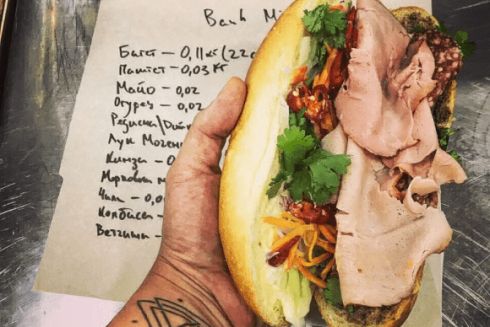 Banh Mi
Багет — 0,11 кг (22с
Паштет — 0,03 кг
Майо — 0,02
Огурец — 0,02
Редиска/Дайк
Лук Мочен
Кинза —
Морковка м
Чили — 0,0
Колбаса —
Ветчина —